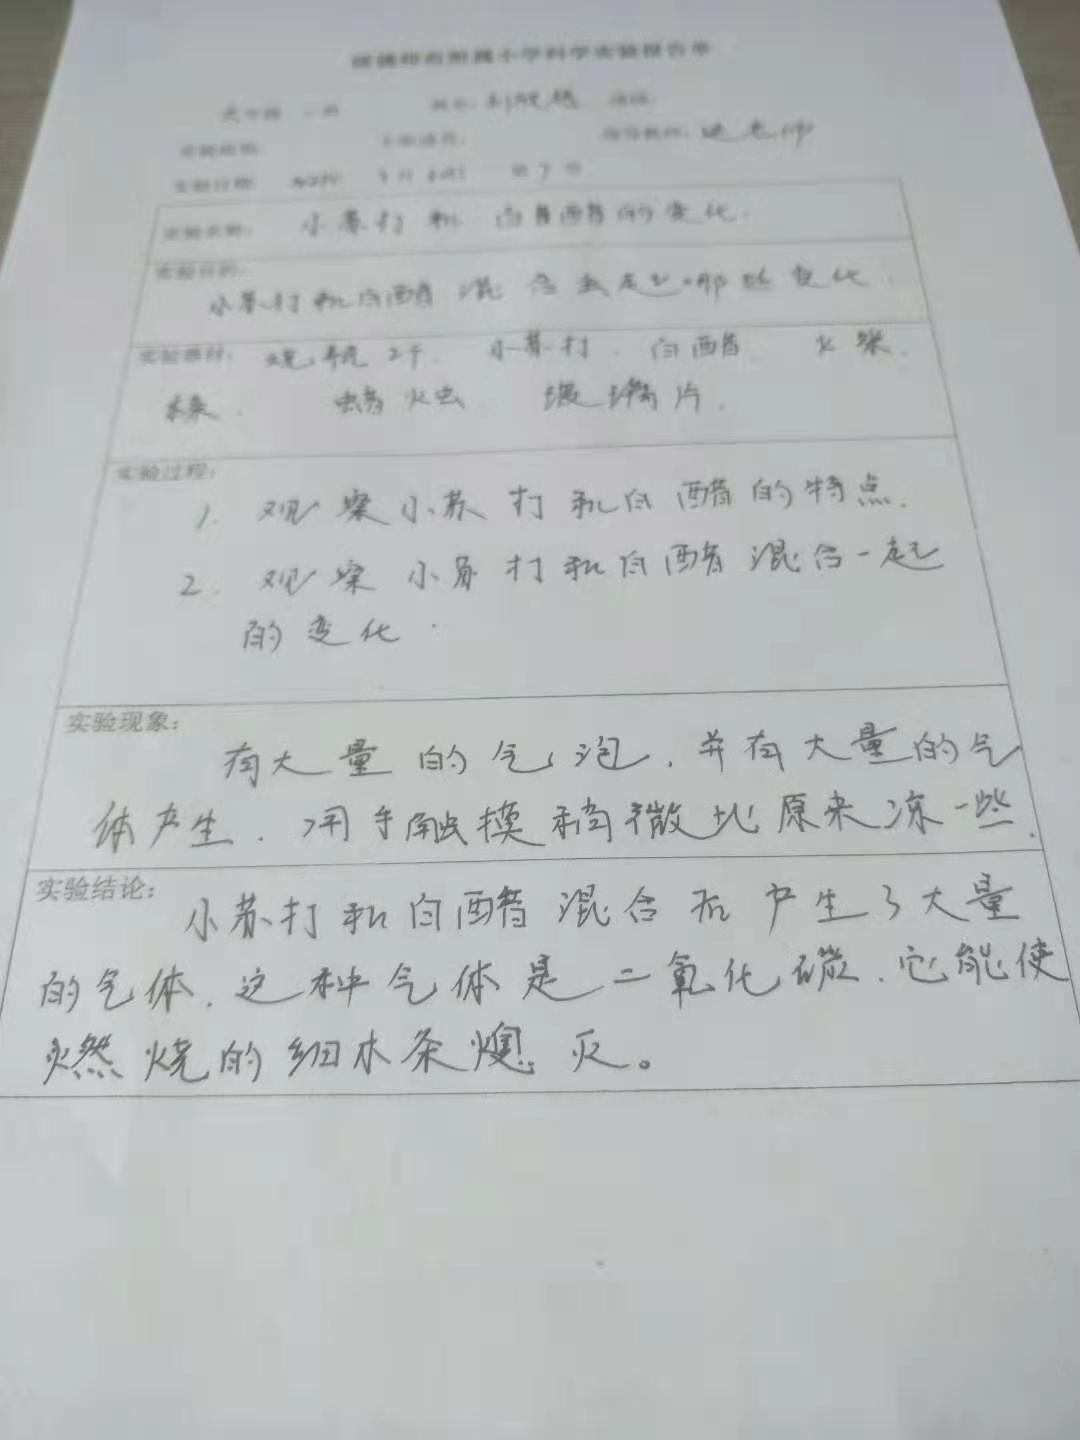 附属小学科学实验报告单
实验日期: 3月
实验名称: 小苏打和白醋的变化.
实验目的:
小苏打和白醋混合会起哪些变化.
实验器材: 烧瓶2个. 小苏打. 白醋 火柴.
蜡烛 玻璃片.
实验过程:
1. 观察小苏打和白醋的特点.
2. 观察小苏打和白醋混合一起
的变化.
实验现象:
有大量的气泡, 并有大量的气
体产生. 用手触摸稍微比原来凉一些.
实验结论:
小苏打和白醋混合后产生了大量
的气体, 这种气体是二氧化碳. 它能使
燃烧的细木条熄灭。